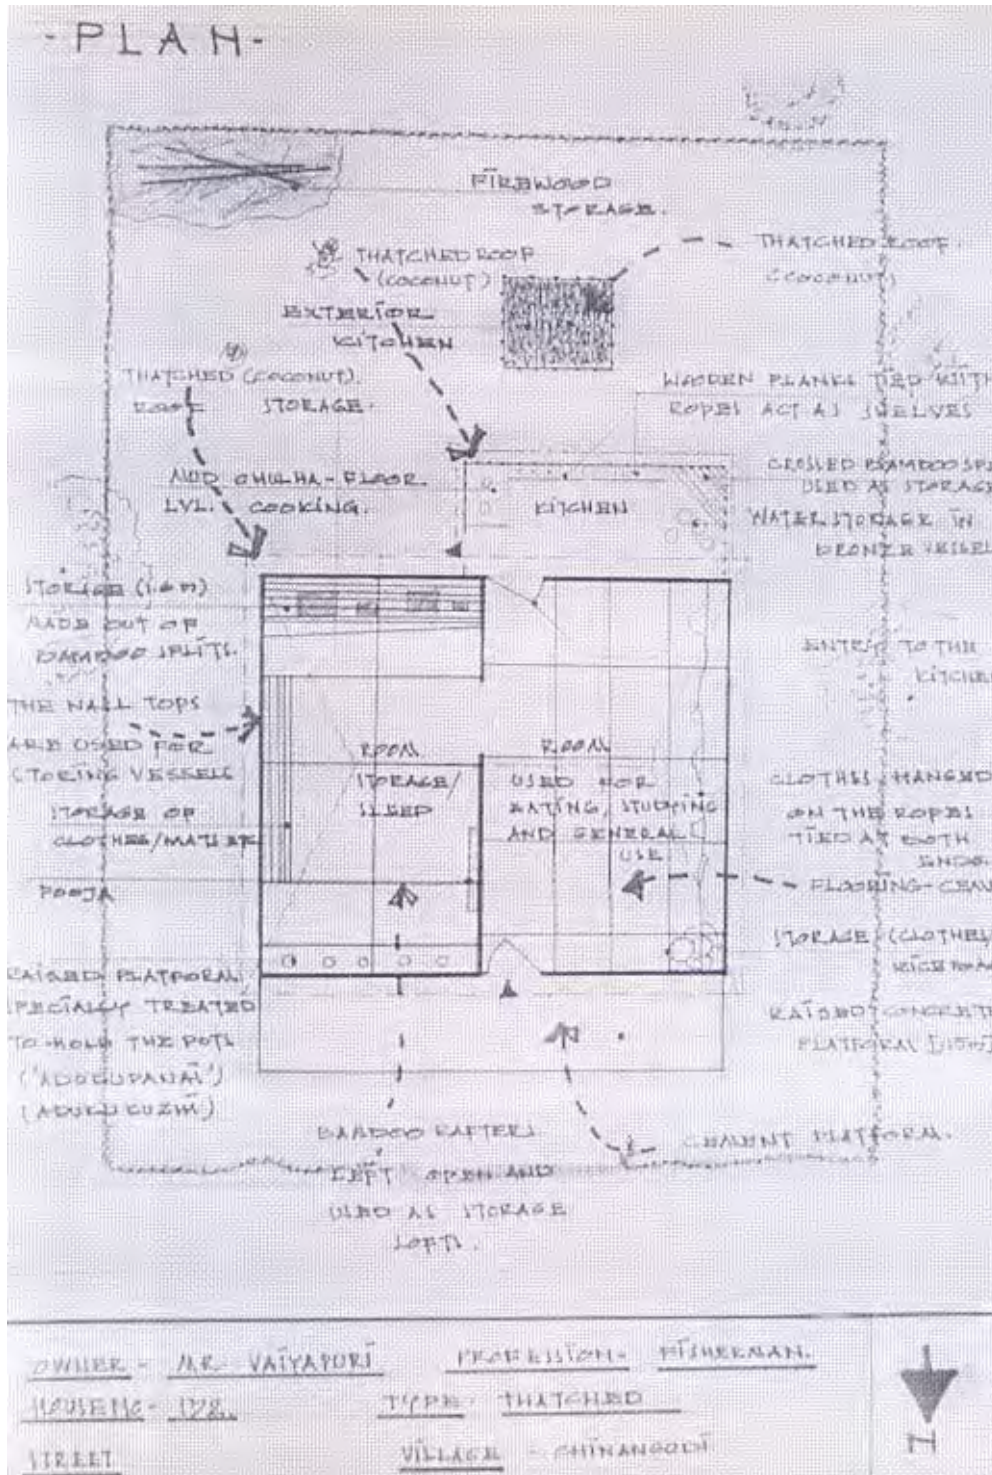 - PLAN -
FIREWOOD
STORAGE.
THATCHED ROOF
(COCONUT)
THATCHED ROOF.
(COCONUT)
EXTERIOR
KITCHEN
THATCHED (COCONUT).
ROOF STORAGE.
WOODEN PLANKS TIED WITH
ROPES ACT AS SHELVES
MUD CHULHA - FLOOR
LVL. COOKING.
KITCHEN
CROSSED BAMBOO
USED AS STORAGE
WATER STORAGE IN
BRONZE VESSEL
STORAGE (1.6 m)
MADE OUT OF
BAMBOO SPLITS.
ENTRY TO THE
KITCHEN
THE WALL TOPS
ARE USED FOR
STORING VESSELS
STORAGE OF
CLOTHES/
POOJA
ROOM
STORAGE/
SLEEP
ROOM
USED FOR
EATING, STUDYING
AND GENERAL
USE
CLOTHES HANGED
ON THE ROPES
TIED AT BOTH
ENDS.
FLOORING -
STORAGE (CLOTHES
RAISED CONCRETE
PLATFORM
RAISED PLATFORM
SPECIALLY TREATED
TO HOLD THE POTS
('ADUCUPANAI')
BAMBOO RAFTERS
LEFT OPEN AND
USED AS STORAGE
LOFTS.
CEMENT PLATFORM.
OWNER - MR VAIYAPURI PROFESSION - FISHERMAN.
HOUSE NO - TYPE - THATCHED
STREET VILLAGE - CHINANGODI
N